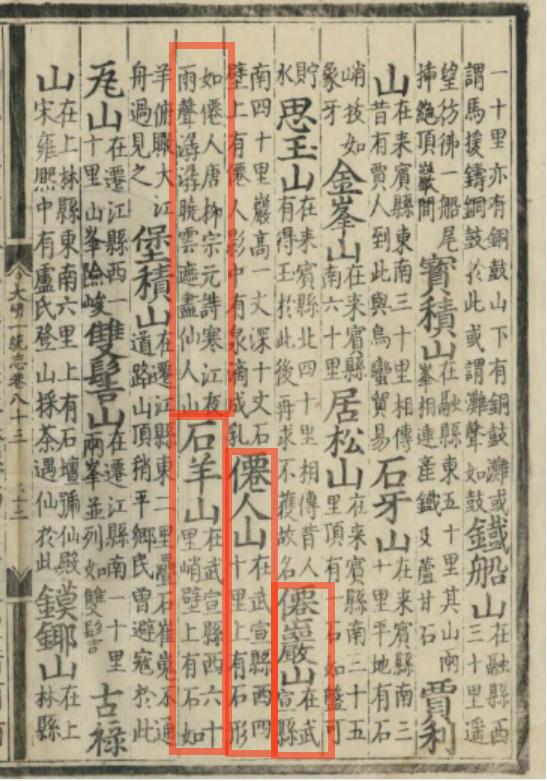 一十里亦有銅鼓山下有銅鼓灘或
謂馬援鑄銅鼓於此或謂灘聲如鼓
鐵船山
在融縣西
三十里遥
望彷彿一船尾
揷絶頂巖間
寶積山
在融縣東五十里其山兩
峯相連產鐵及蘆甘石
賈利
山
在来賓縣東南三十里相傳
昔有賈人到此與烏蠻貿易
石牙山
在来賓縣南三
十里平地有石
峭拔如
象牙
金峯山
在来賓縣
南六十里
居松山
在来賓縣南三十五
里頂有石如盤可
貯
水
思玉山
在来賓縣北四十里相傳昔人
有得玉於此後再求不獲故名
僊巖山
在武
宣縣
南四十里巖高一丈深十丈石
壁上有僊人影中有泉滴成乳
僊人山
在武宣縣西四
十里上有石形
如僊人唐柳宗元詩寒江夜
雨聲潺潺晓雲遮盡仙人山
石羊山
在武宣縣西六十
里峭壁上有石如
羊俯瞰大江
舟過見之
堡積山
在遷江縣東二里疊石崔嵬不通
道路山頂稍平鄉民曽避寇於此
山
在遷江縣西一
十里山峯險峻
雙髻山
在遷江縣南一十里
兩峯並列如雙髻
古禄
山
在上林縣東南六里上有石壇號仙殿
宋雍熙中有盧氏登山採茶遇仙於此
鏌鎁山
在上
林縣
大明一統志卷八十三